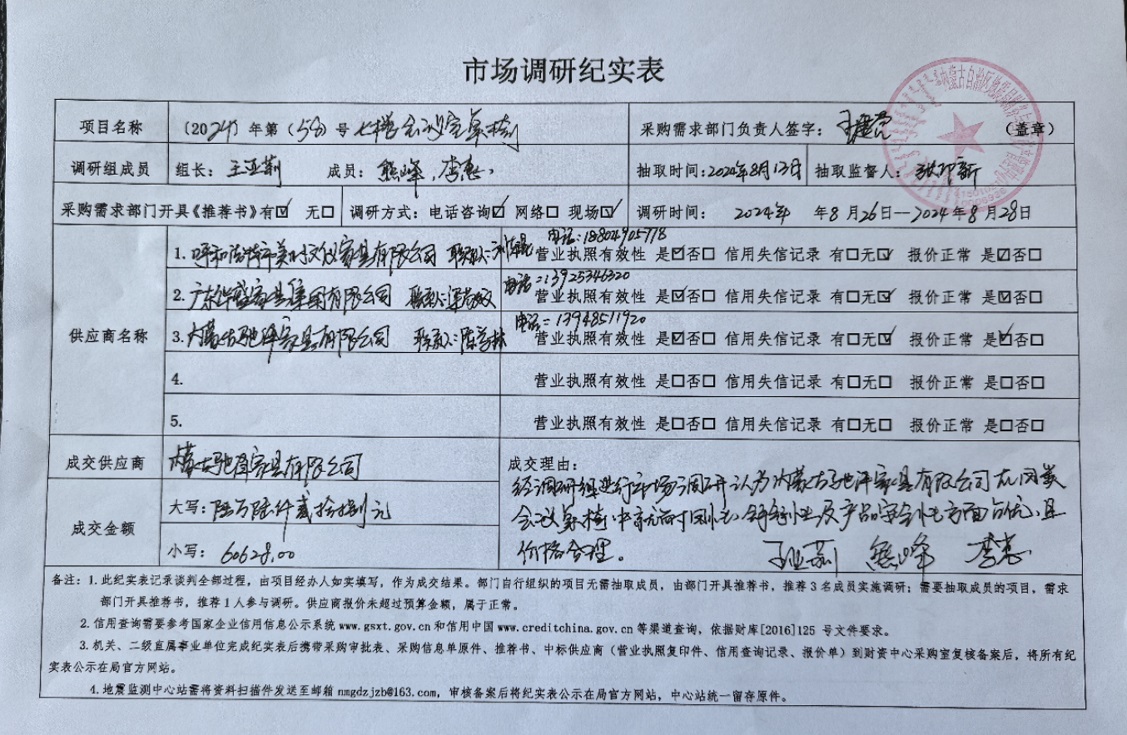 市场调研纪实表
项目名称 (2024)年第(58)号 七楼会议室桌椅 采购需求部门负责人签字: (盖章)
调研组成员 组长: 王亚莉 成员: 熊峰, 李惠, 抽取时间:2024年8月13日 抽取监督人:
采购需求部门开具《推荐书》有☑ 无□ 调研方式: 电话咨询☑ 网络□ 现场☑ 调研时间: 2024年 年8月26日--2024年8月28日
电话: 18804905778
1. 呼和浩特市美时家具有限公司 联系人: 营业执照有效性 是☑否□ 信用失信记录 有□无☑ 报价正常 是☑否□
电话:13925346320
2. 广东华盛家具集团有限公司 联系人: 营业执照有效性 是☑否□ 信用失信记录 有□无☑ 报价正常 是☑否□
电话: 13948511920
供应商名称 3. 内蒙古驰泽家具有限公司 联系人: 营业执照有效性 是☑否□ 信用失信记录 有□无☑ 报价正常 是☑否□
4. 营业执照有效性 是□否□ 信用失信记录 有□无□ 报价正常 是□否□
5. 营业执照有效性 是□否□ 信用失信记录 有□无□ 报价正常 是□否□
成交供应商 内蒙古驰泽家具有限公司
成交金额 大写: 陆万陆仟贰拾捌元
小写: 60628.00
成交理由:
经调研组进行市场调研认为内蒙古驰泽家具有限公司在同类
会议桌椅中就耐用性、舒适性及产品安全性方面占优,且
价格合理。 王亚莉 熊峰 李惠
备注: 1.此纪实表记录谈判全部过程,由项目经办人如实填写,作为成交结果。部门自行组织的项目无需抽取成员,由部门开具推荐书,推荐3名成员实施调研;需要抽取成员的项目,需求
部门开具推荐书,推荐1人参与调研。供应商报价未超过预算金额,属于正常。
2.信用查询需要参考国家企业信用信息公示系统www.gsxt.gov.cn和信用中国www.creditchina.gov.cn等渠道查询,依据财库[2016]125 号文件要求。
3.机关、二级直属事业单位完成纪实表后携带采购审批表、采购信息单原件、推荐书、中标供应商(营业执照复印件、信用查询记录、报价单)到财资中心采购室复核备案后,将所有纪
实表公示在局官方网站。
4.地震监测中心站需将资料扫描件发送至邮箱nmgdzjzb@163.com,审核备案后将纪实表公示在局官方网站,中心站统一留存原件。